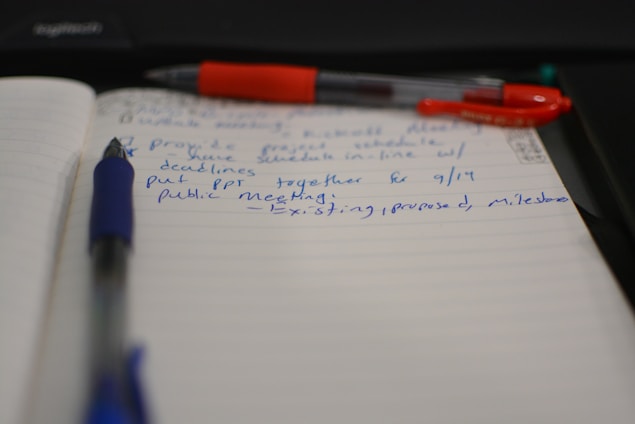 logitech
update meeting - Kickoff Meeting
provide project schedule
- schedule in-line w/
deadlines
put PPT together for 9/14
public meeting:
- Existing, proposed, milestone